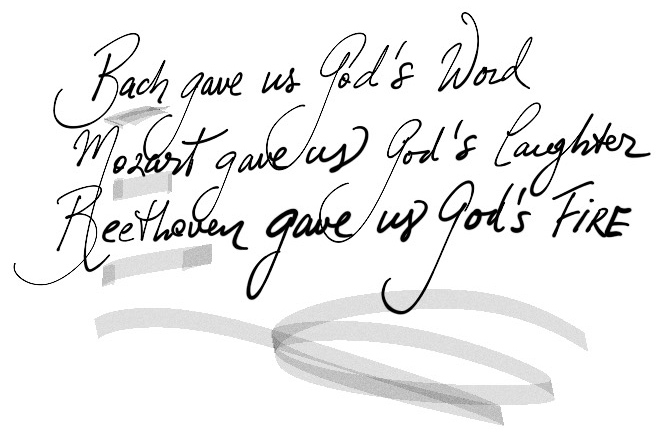 Bach gave us God's Word
Mozart gave us God's Laughter
Beethoven gave us God's FiRE